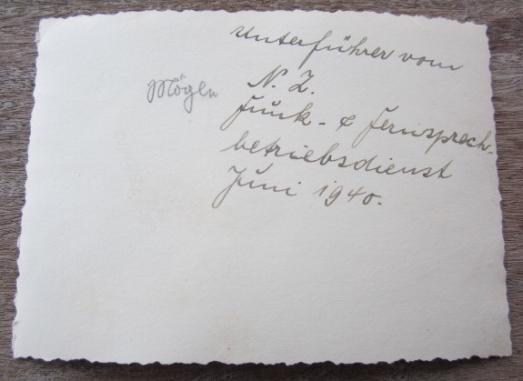 Unterführer vom
Mögln N. Z.
Funk- & Fernsprech-
betriebsdienst
Juni 1940.